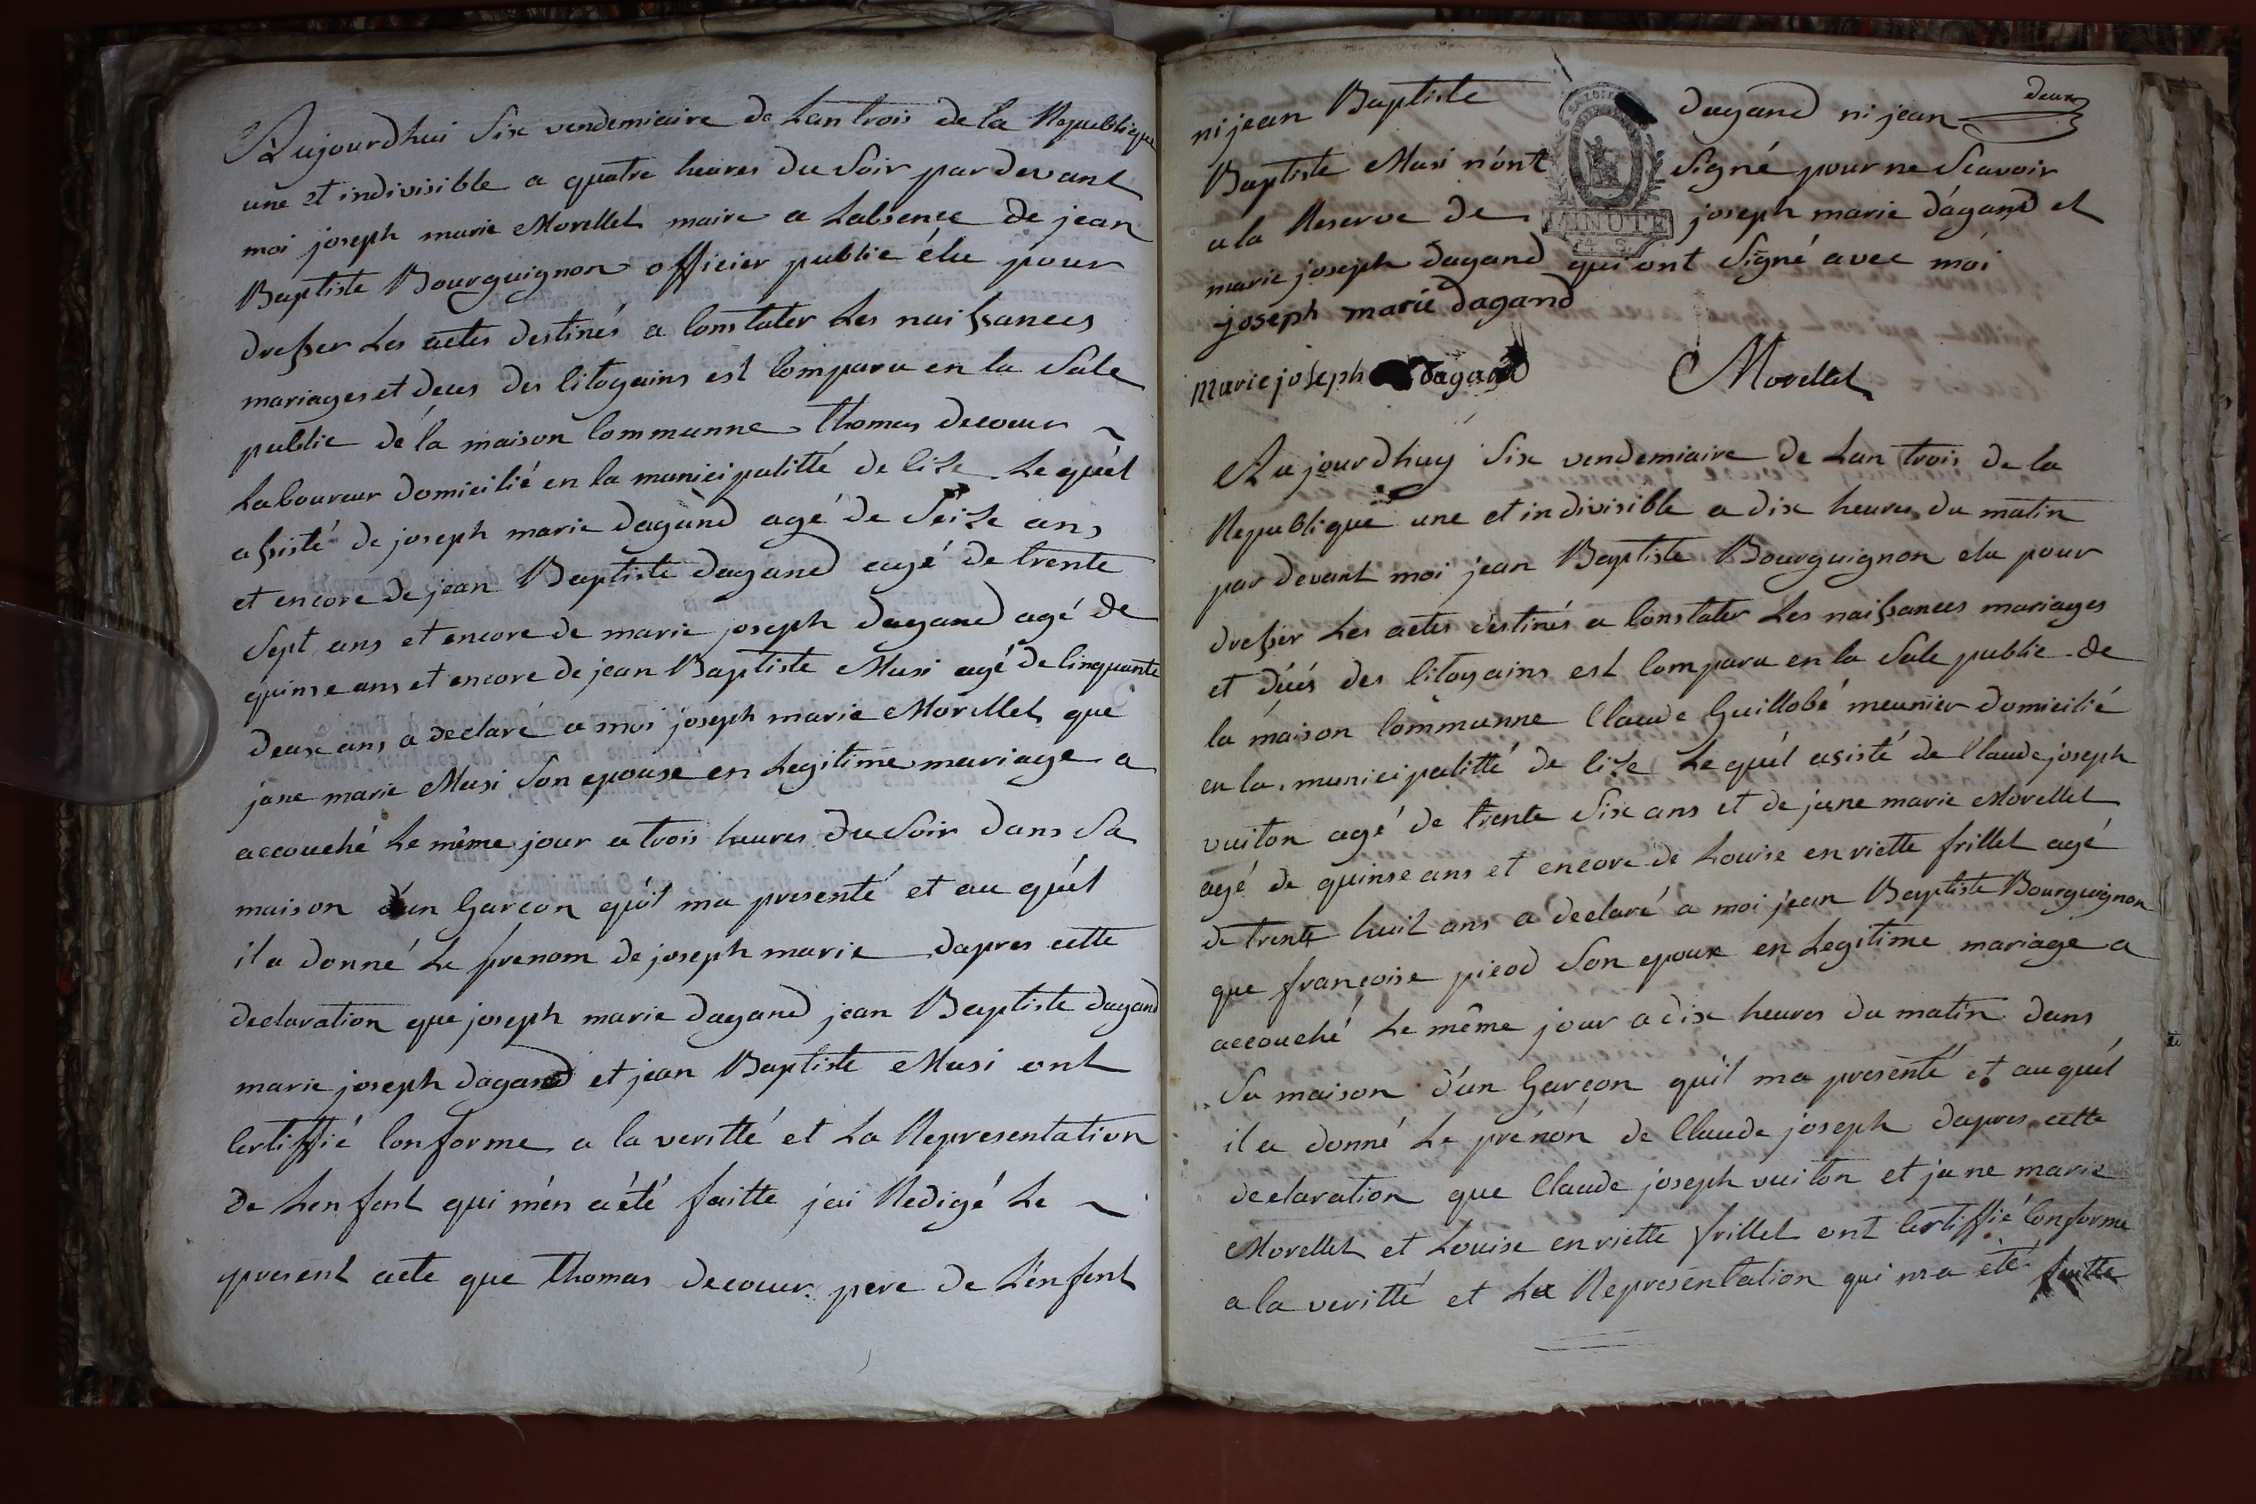 Aujourdhui Six vendemiaire de Lan trois de la Republique
une et indivisible a quatre heures du Soir par devant
moi joseph marie Morellet maire a Labsence de jean
Baptiste Bourguignon officier public élu pour
dresser Les actes destinés a Constater Les naissances
mariages et deces des Citoyains est Comparu en la Sale
public de la maison Communne Thomas decoeur
Laboureur domicilié en la municipalitté de Cize Le quel
assisté de joseph marie dagand agé de Seize ans
et encore de jean Baptiste dagand agé de trente
Sept ans et encore de marie joseph dagand agé de
quinse ans et encore de jean Baptiste Musi agé de Cinquante
deux ans a declaré a moi joseph marie Morellet que
jane marie Musi Son epouse en Legitime mariage a
accouché Le même jour a trois heures du Soir dans Sa
maison d'un Garcon qu'il ma presenté et au quel
il a donné Le prenom de joseph marie dapres cette
declaration que joseph marie dagand jean Baptiste dagand
marie joseph dagand et jean Baptiste Musi ont
Certiffié Conforme a la veritté et La Representation
de Lenfent qui m'en a été faitte j'ai Redigé Le
present acte que Thomas decoeur pere de L'enfent
deux
ni jean Baptiste dagand ni jean
Baptiste Musi n'ont Signé pour ne Scavoir
a la Reserve de joseph marie dagand et
marie joseph dagand qui ont Signé avec moi
joseph marie dagand
marie joseph dagand Morellet
MINUTE
Aujourdhuy Six vendemiaire de Lan trois de la
Republique une et indivisible a dix heures du matin
par devant moi jean Baptiste Bourguignon elu pour
dresser Les actes destinés a Constater Les naissances mariages
et décés des Citoyains est Comparu en la Sale public de
la maison Communne Claude Guillobé meunier domicilié
en la municipalitté de Cize Le quel asisté de Claude joseph
vuiton agé de trente Six ans et de jane marie Morellet
agé de quinse ans et encore de Louise enriette frillet agé
de trente huit ans a declaré a moi jean Baptiste Bourguignon
que francoise pieod Son epoux en Legitime mariage a
accouché Le même jour a dix heures du matin dans
Sa maison d'un Garcon qu'il ma presenté et au quel
il a donné Le prénon de Claude joseph dapres cette
declaration que Claude joseph vuiton et jane marie
Morellet et Louise enriette frillet ont Certiffié Conforme
a la veritté et La Representation qui ma été faitte